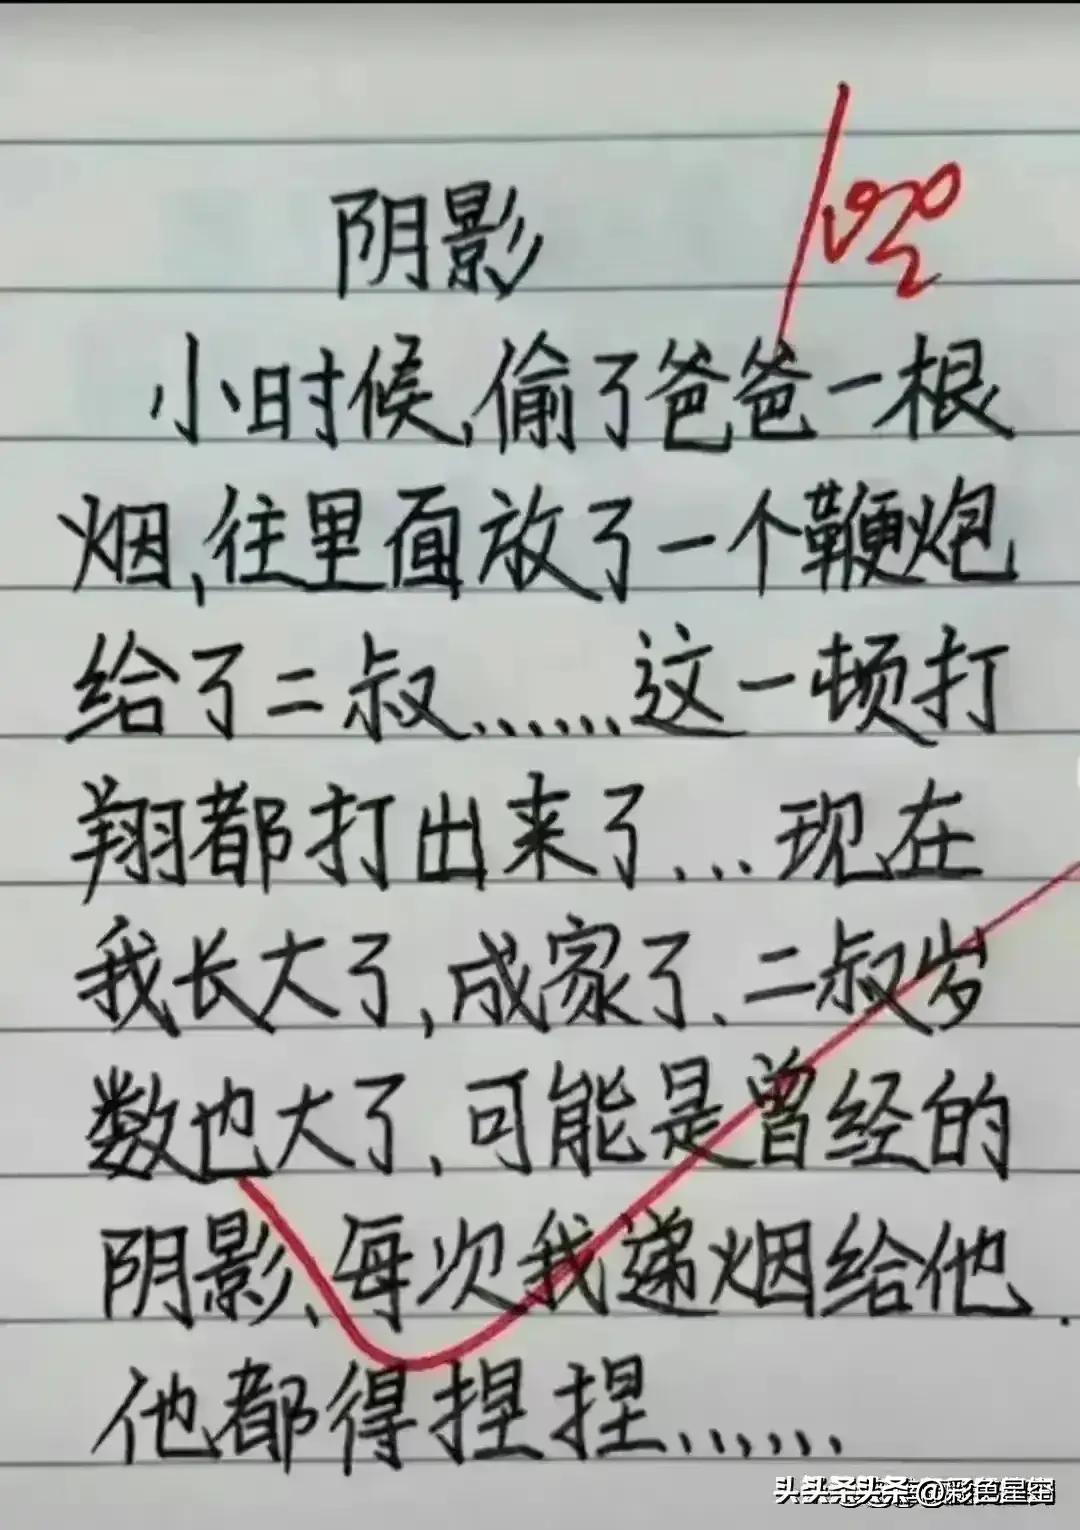 阴影
小时候,偷了爸爸一根
烟,往里面放了一个鞭炮
给了二叔......这一顿打
翔都打出来了...现在
我长大了,成家了、二叔岁
数也大了,可能是曾经的
阴影、每次我递烟给他.
他都得捏捏......
@彩色星空